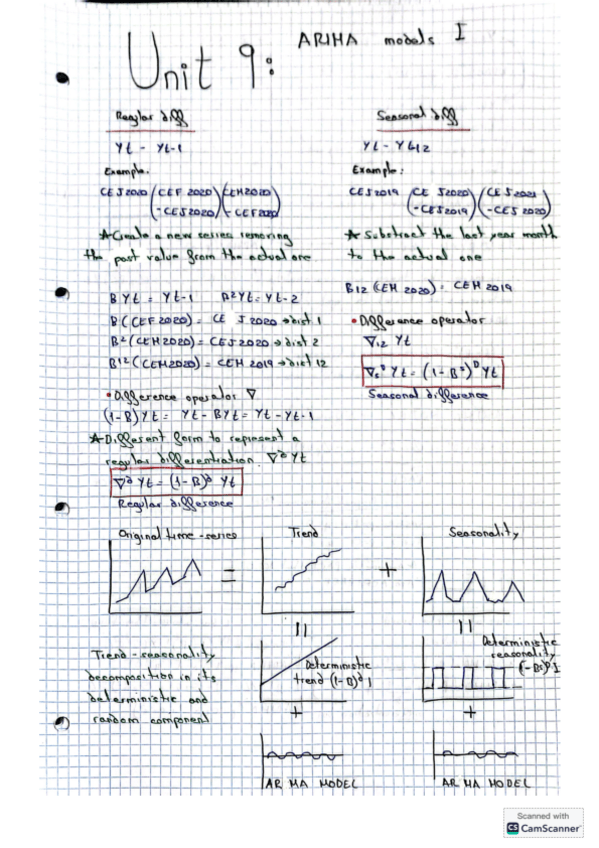 Unit 9:
ARIMA models I
Regular diff
Yt - Yt-1
Example.
CEJ2020 (CEF 2020 - CEJ2020) (CEM2020 - CEF2020)
★ Create a new series removing
the past value from the actual one
BYt = Yt-1 B²Yt = Yt-2
B(CEF2020) = CE J 2020 → dist 1
B²(CEM2020) = CEJ2020 → dist 2
B12(CEM2020) = CEM 2019 → dist 12
• Difference operator ∇
(1-B)Yt = Yt - BYt = Yt - Yt-1
★ Different form to represent a
regular differentiation ∇ᵈ Yt
∇ᵈ Yt = (1-B)ᵈ Yt
Regular difference
Seasonal diff
Yt - Yt-12
Example:
CEJ2019 (CE J2020 - CEJ2019) (CE J2021 - CEJ 2020)
★ Substract the last year month
to the actual one
B12 (CEM 2020) = CEM 2019
• Difference operator
∇12 Yt
∇sᴰ Yt = (1-Bˢ)ᴰ Yt
Seasonal difference
Original time-series = Trend + Seasonality
Trend-seasonality
decomposition in its
deterministic and
random component
=
Deterministic
trend (1-B)ᵈ 1
+
ARMA MODEL
=
Deterministic
seasonality
(1-Bˢ)ᴰ 1
+
ARMA MODEL
Scanned with
CS CamScanner